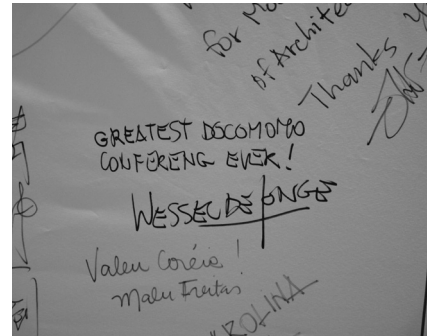 for Mo
of Archite
Thanks
GREATEST DOCOMOMO
CONFERENG EVER!
WESSEL DE JONGE
Valeu Coréia!
Malu Freitas
ROLINA